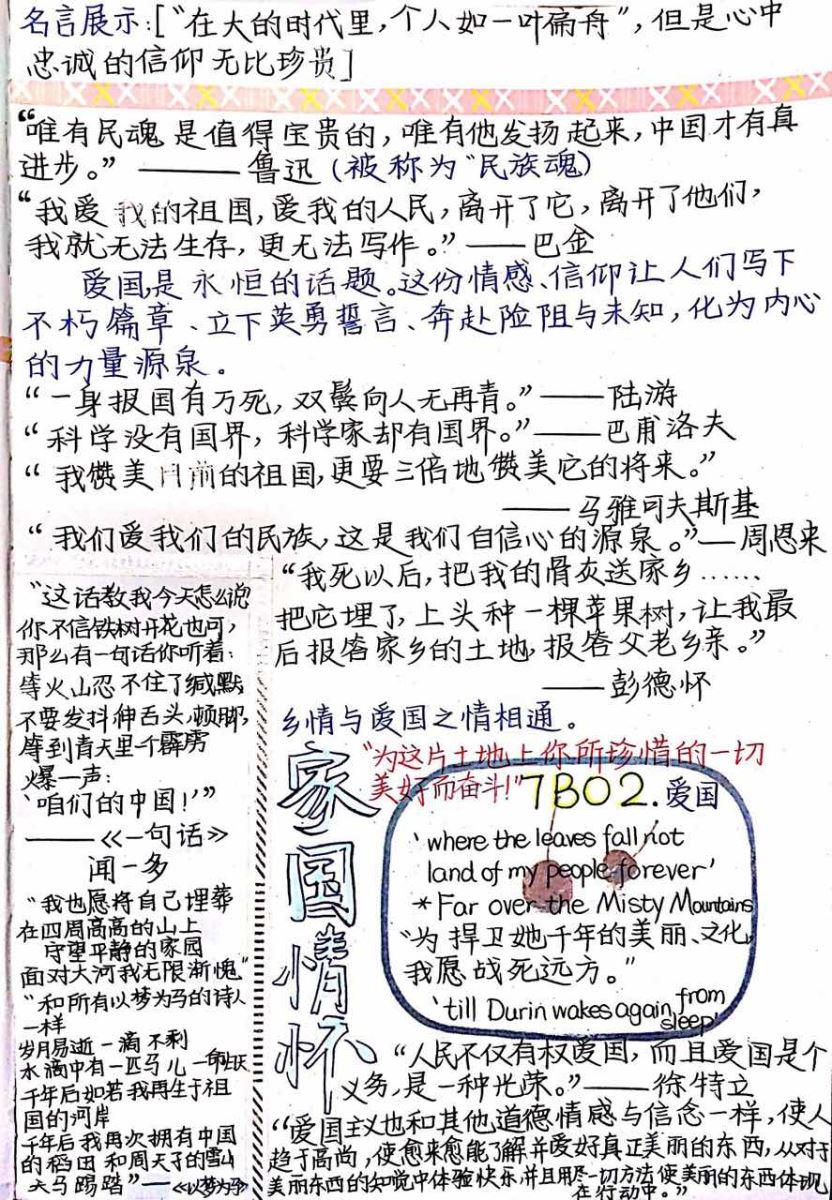 名言展示:[“在大的时代里,个人如一叶扁舟”,但是心中
忠诚的信仰无比珍贵]
“唯有民魂是值得宝贵的,唯有他发扬起来,中国才有真
进步。”——鲁迅(被称为“民族魂)
“我爱我的祖国,爱我的人民,离开了它,离开了他们,
我就无法生存,更无法写作。”——巴金
爱国是永恒的话题。这份情感、信仰让人们写下
不朽篇章、立下英勇誓言、奔赴险阻与未知,化为内心
的力量源泉。
“一身报国有万死,双鬓向人无再青。”——陆游
“科学没有国界,科学家却有国界。”——巴甫洛夫
“我赞美目前的祖国,更要三倍地赞美它的将来。”
——马雅可夫斯基
“我们爱我们的民族,这是我们自信心的源泉。”—周恩来
“我死以后,把我的骨灰送家乡……
把它埋了,上头种一棵苹果树,让我最
后报答家乡的土地,报答父老乡亲。”
——彭德怀
乡情与爱国之情相通。
“这话教我今天怎么说
你不信铁树开花也可,
那么有一句话你听着:
等火山忍不住了缄默
不要发抖伸舌头,顿脚,
等到青天里一个霹雳
爆一声:
‘咱们的中国!’”
——《一句话》
闻一多
“我也愿将自己埋葬
在四周高高的山上
守望平静的家园
面对大河我无限渐愧”
“和所有以梦为马的诗人
一样
岁月易逝 一滴不剩
水滴中有一匹马儿 一命归天
千年后如若我再生于祖
国的河岸
千年后我再次拥有中国
的稻田 和周天子的雪山
天马踢踏”—《以梦为马》
家国情怀
“为这片土地上你所珍惜的一切
美好而奋斗!”
7B02.爱国
‘where the leaves fall not
land of my people forever’
*Far over the Misty Mountains
“为捍卫她千年的美丽、文化,
我愿战死远方。”
‘till Durin wakes again from
sleep’
“人民不仅有权爱国,而且爱国是个
义务,是一种光荣。”——徐特立
“爱国主义也和其他道德情感与信念一样,使人
趋于高尚,使愈来愈能了解并爱好真正美丽的东西,从对于
美丽东西的知觉中体验快乐,并且用尽一切方法使美丽的东西体现
在行动中。”